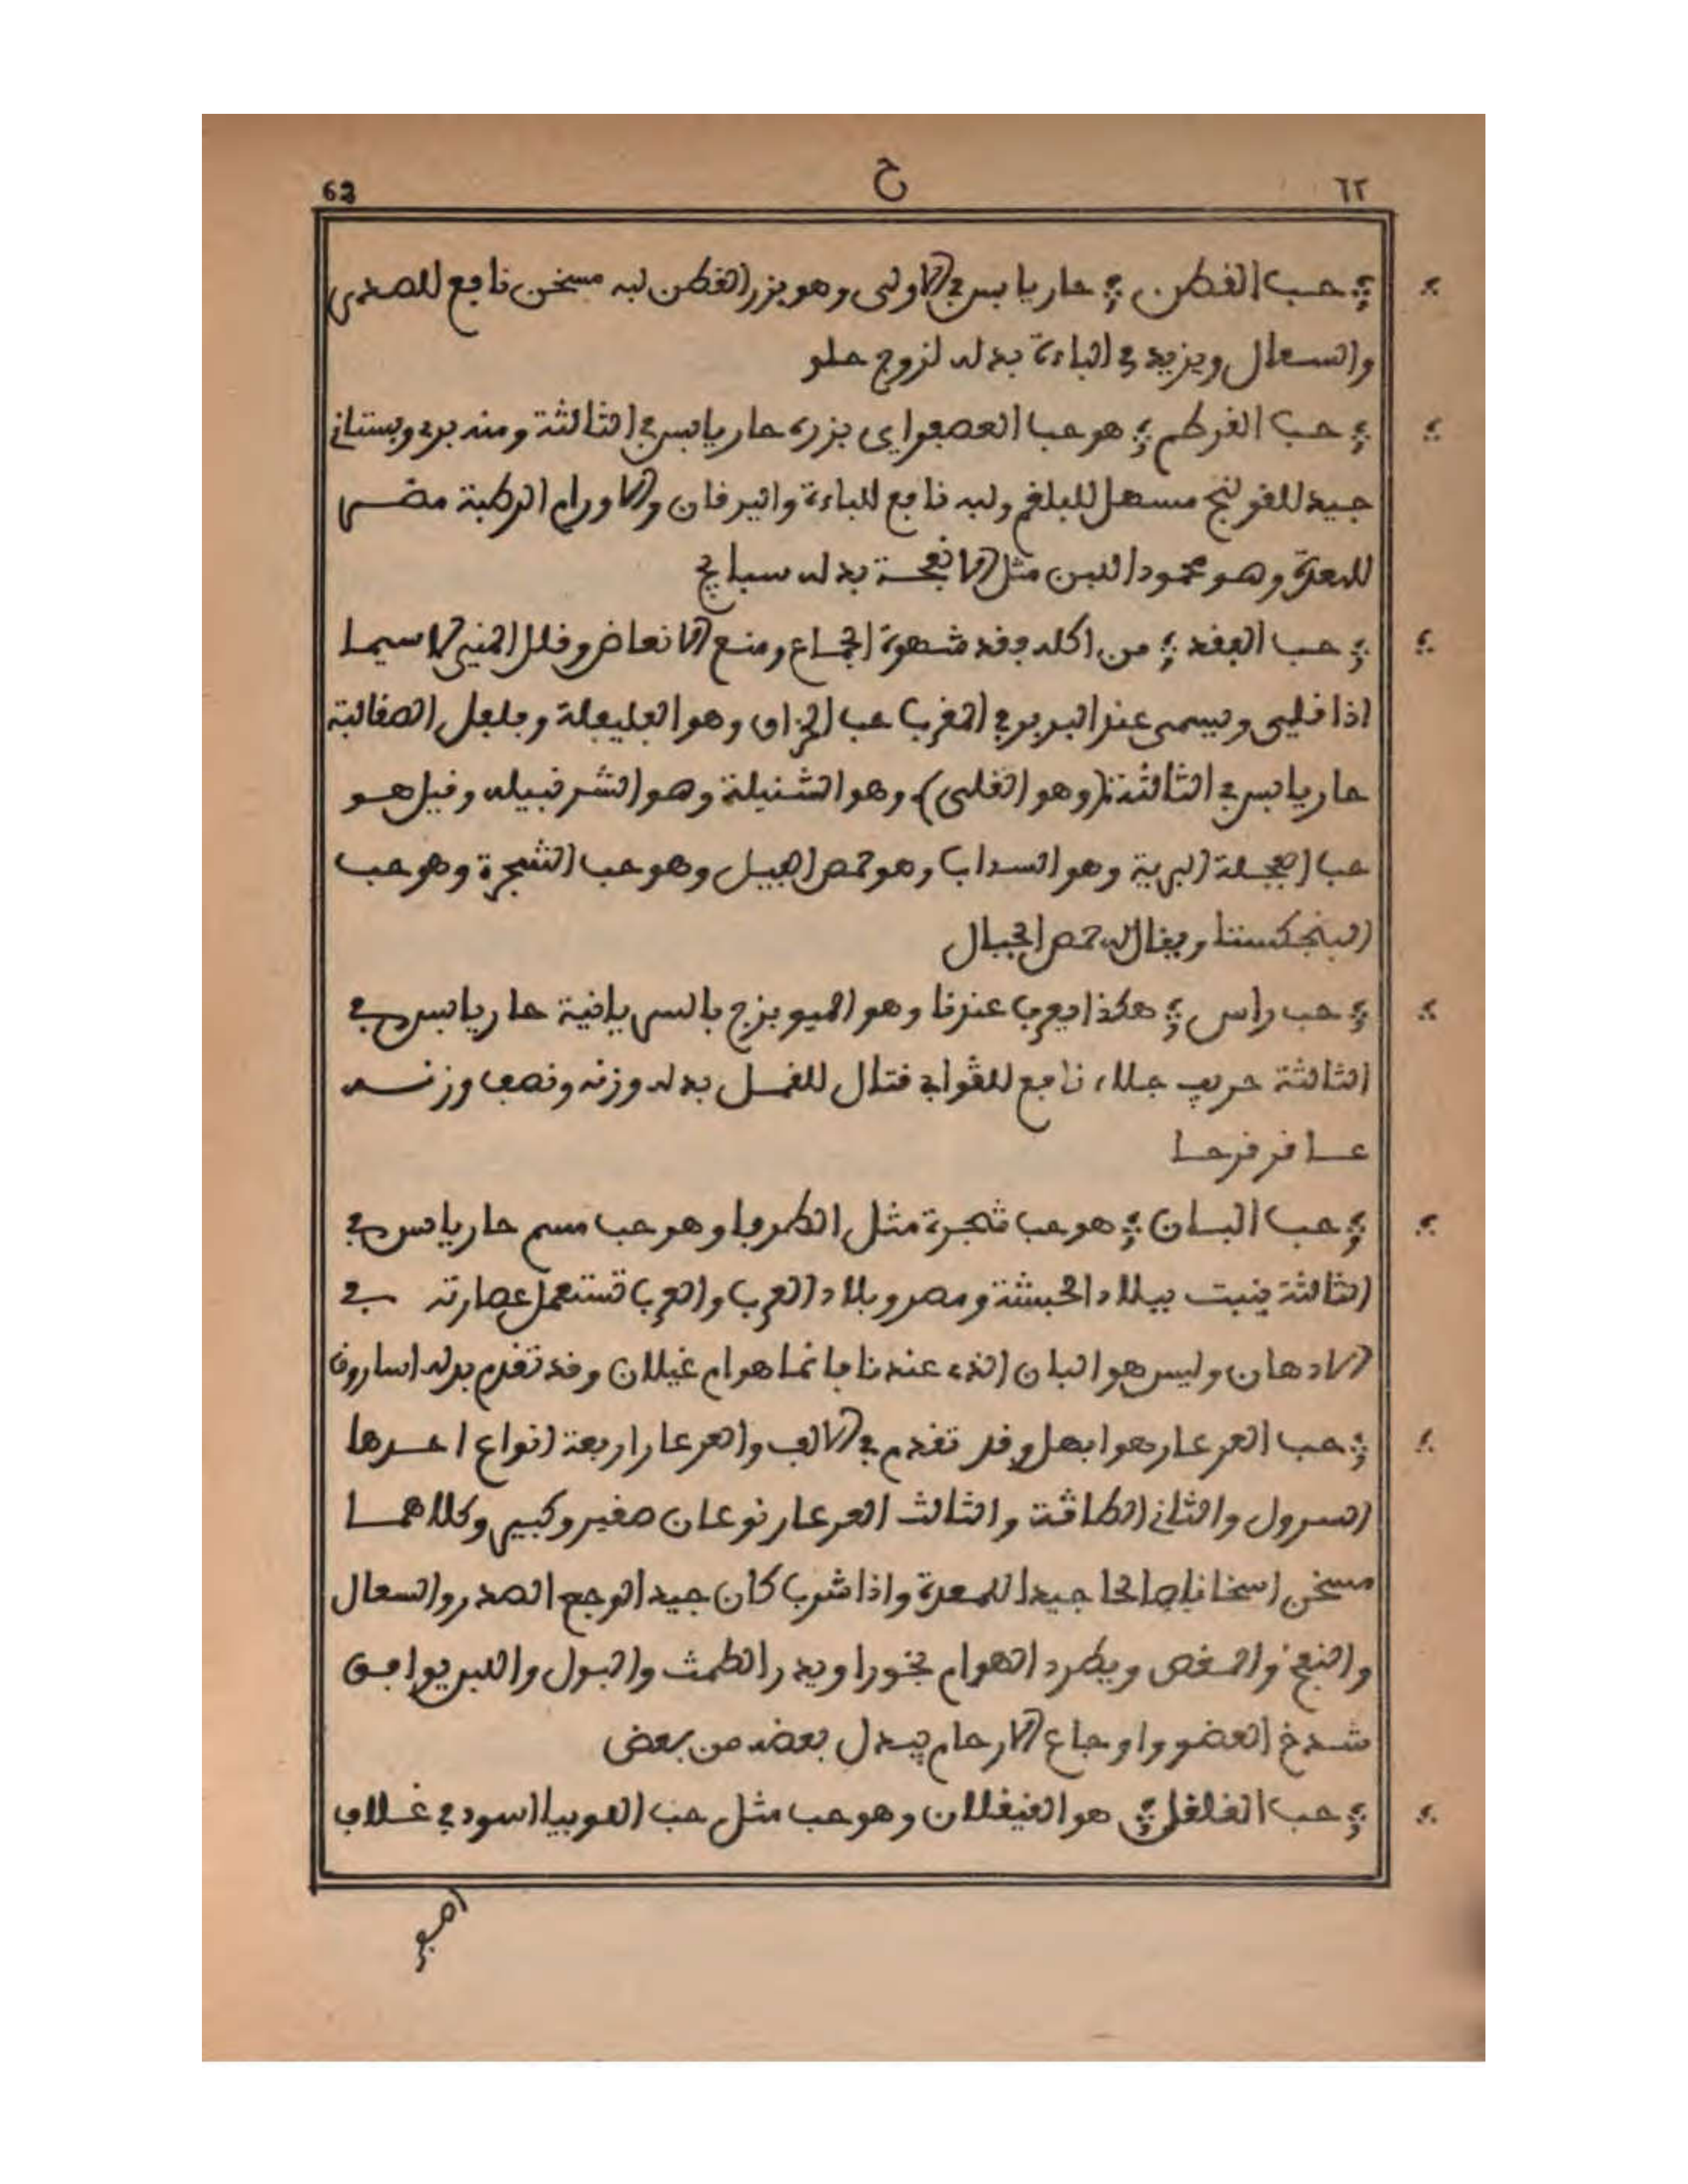 ٦٢ ح 62
حب القطن حار يابس في الاولى وهو بزر القطن لبه مسخن نافع للصدر
والسعال ويزيد في الباءة بدله لزوج حلو
حب القرطم هو حب العصفر اي بزره حار يابس في الثالثة ومنه بري وبستاني
جيد للقولنج مسهل للبلغم ولبه نافع للباءة واليرقان والاورام الرطبة مضر
للمعدة وهو محمود اللبن مثل الانفحة بدله سبايج
حب الفقد من اكله فقد شهوة الجماع ومنع الانعاض وقلل المني لا سيما
اذا قلي ويسمى عند البربر في المغرب حب الخزاف وهو الفليفلة وفلفل الصقالبة
حار يابس في الثالثة (وهو القلى) وهو الشنيلة وهو الشرفبيله وقيل هو
حب الفجلة البرية وهو السداب وهو حمص الجبيل وهو حب الشجرة وهو حب
البنجكست ويقال له حمص الجبال
حب راس هكذا يعرف عندنا وهو الميويزج بالسريانية حار يابس في
الثالثة حريف جلاء نافع للقوابي قتال للقمل بدله وزنه ونصف وزنه
عاقرقرحا
حب البان هو حب شجرة مثل الطرفا وهو حب مسم حار يابس في
الثالثة ينبت ببلاد الحبشة ومصر وبلاد العرب والعرب تستعمل عصارته في
الادهان وليس هو البان الذي عندنا فانما هو ام غيلان وقد تقدم بدله اسارون
حب العرعار هو ابهل وقد تقدم في الالف والعرعار اربعة انواع احدها
السرول والثاني الطاقة والثالث العرعار نوعان صغير وكبير وكلاهما
مسخن اسخانا صالحا جيدا للمعدة واذا شرب كان جيدا لوجع الصدر والسعال
والنفخ والمغص ويطرد الهوام بخورا ويدر الطمث والبول واللبن يوافق
شدخ العضو واوجاع الارحام يبدل بعضه من بعض
حب القلقل هو القيقلان وهو حب مثل حب اللوبيا اسود في غلاف